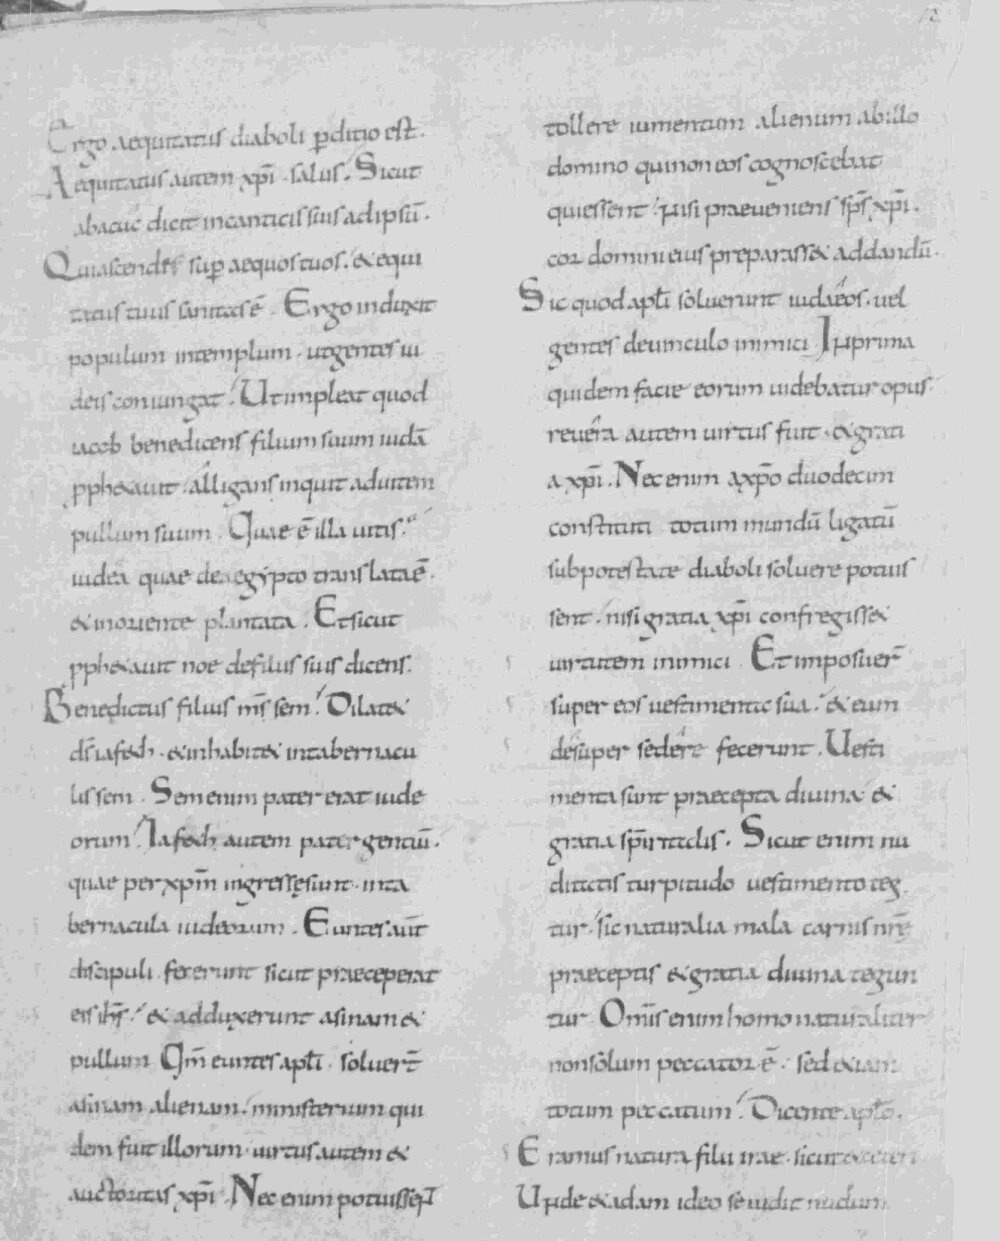 Ergo aequitatus diaboli p̄ditio est.
Aequitatus autem xp̄i · salus. Sicut
abacuc dicit incanticis suis adipsū.
Quiascendes sup̄ aequos tuos. & equi
tatus tuus sanitas ē. Ergo induxit
populum intemplum · utgentes iu
deis coniungat. Utimpleat quod
iacob benedicens filium suum iudā
pphetauit · alligans inquit aduitem
pullum suum. Quae ē illa uitis.
iudea quae deaegypto translataē.
& inoriente plantata. Etsicut
pphetauit noe defiliis suis dicens.
Benedictus filius m̄s sem. Dilat&
d̄s iafeth · & inhabit& intabernacu
lis sem. Sem enim pater erat iude
orum. Iafeth autem pater gentiū.
quae per xp̄m ingressę sunt · inta
bernacula iudeorum. Euntes aut̄
discipuli fecerunt sicut praeceperat
eis ih̄s. & adduxerunt asinam &
pullum Qm̄ euntes apłi · soluer̄t
asinam alienam. ministerium qui
dem fuit illorum · uirtus autem &
auctoritas xp̄i. Nec enim potuissent
tollere iumentum alienum abillo
domino quinon eos cognoscebat
quiessent. nisi praeueniens sp̄s xp̄i.
cor domini eius preparass& addandū.
Sic quod apłi soluerunt iudaeos · uel
gentes deuinculo inimici Inprima
quidem facie eorum uidebatur opus.
reuera autem uirtus fuit · & grati
a xp̄i. Nec enim axp̄o duodecim
constituti totum mundū ligatū
subpotestate diaboli soluere potuis
sent · nisi gratia xp̄i confregiss&
uirtutem inimici. Et imposuer̄
super eos uestimenta sua. & eum
desuper sedere fecerunt. Uesti
menta sunt praecepta diuina · &
gratia sp̄iritalis. Sicut enim nu
ditatis turpitudo uestimento teg
tur. sic naturalia mala carnis nr̄ę
praeceptis & gratia diuina tegun
tur. Om̄is enim homo naturaliter
nonsolum peccator ē · sed etiam
totum peccatum. Dicente apło.
Eramus natura filii irae · sicut
Unde & adam ideo se uidit nudum